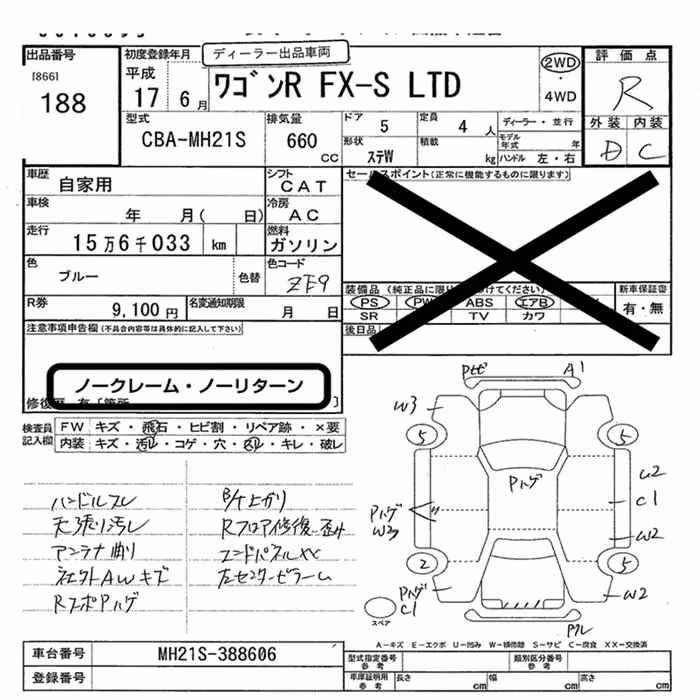 出品番号
[866]
188
初度登録年月
ディーラー出品車両
平成
17 6月
ワゴンR FX-S LTD
2WD
・
4WD
評価点
R
外装 内装
D C
型式
CBA-MH21S
排気量
660
CC
ドア
5
定員
4人
ディーラー・並行
形状
ステW
積載
kg
モデル年式
年
ハンドル 左・右
車歴
自家用
シフト
CAT
セールスポイント(正常に機能するものに限ります)
車検
年 月( 日)
冷房
AC
走行
15万6千033 km
燃料
ガソリン
色
ブルー
色替
色コード
ZE9
装備品
PS
ABS
エアB
SR
TV
カワ
新車保証書
有・無
後日品
R券
9,100円
名変通知期限
月 日
注意事項申告欄(不具合内容等は具体的に記入して下さい)
ノークレーム・ノーリターン
検査員記入欄
FW キズ・飛石・ヒビ割・リペア跡・×要
内装 キズ・汚レ・コゲ・穴・スレ・キレ・破レ
ハンドルスレ
天張り汚レ
アンテナ曲り
R
A1
W3
5
5
PハゲW3
Pハゲ
U2
C1
W2
2
5
PハゲC1
W2
スペア
A-キズ E-エクボ U-凹み W-補修跡 S-サビ C-腐食 XX-交換済
車台番号
MH21S-388606
登録番号
型式指定番号
参考
類別区分番号
参考
車庫証明用
参考
長さ
cm
幅
cm
高さ
cm